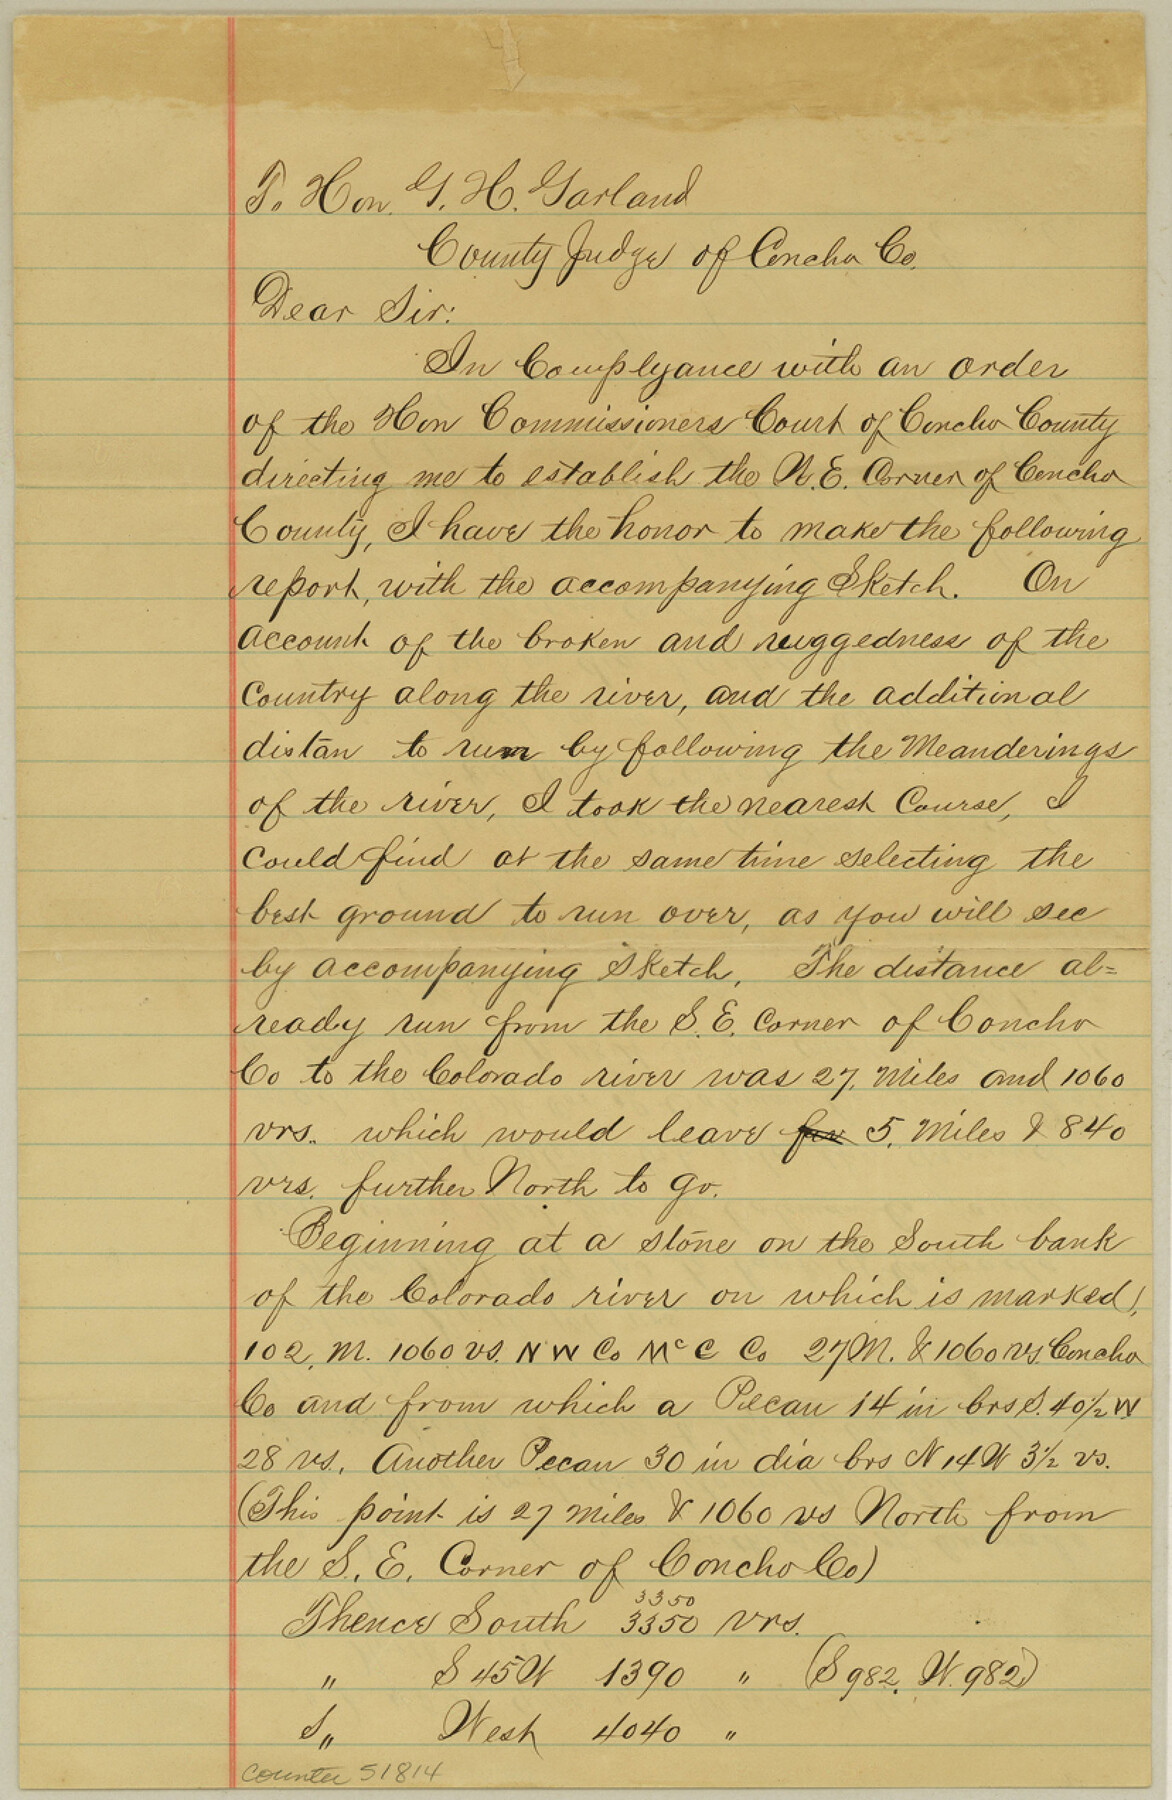 To Hon. G. H. Garland
County Judge of Concho Co.
Dear Sir:
In Complyance with an order
of the Hon Commissioners Court of Concho County
directing me to establish the N.E. Corner of Concho
County, I have the honor to make the following
report, with the accompanying Sketch. On
account of the broken and ruggedness of the
Country along the river, and the additional
distan to run by following the Meanderings
of the river, I took the nearest Course, I
could find at the same time selecting the
best ground to run over, as you will see
by accompanying Sketch. The distance al=
ready run from the S.E. Corner of Concho
Co to the Colorado river was 27, Miles and 1060
vrs. which would leave for 5, Miles & 840
vrs. further North to go.
Beginning at a stone on the South bank
of the Colorado river on which is marked,
102, M. 1060 vs. N W Co McC Co 27 M. & 1060 vs. Concho
Co and from which a Pecan 14 in brs S. 40 1/2 W
28 vs. Another Pecan 30 in dia brs N 14 W 3 1/2 vs.
(This point is 27 miles & 1060 vs North from
the S. E. Corner of Concho Co)
3350
Thence South 3350 vrs.
" S 45 W 1390 " (S 982, W. 982)
S " West 4040 "
counter 51814